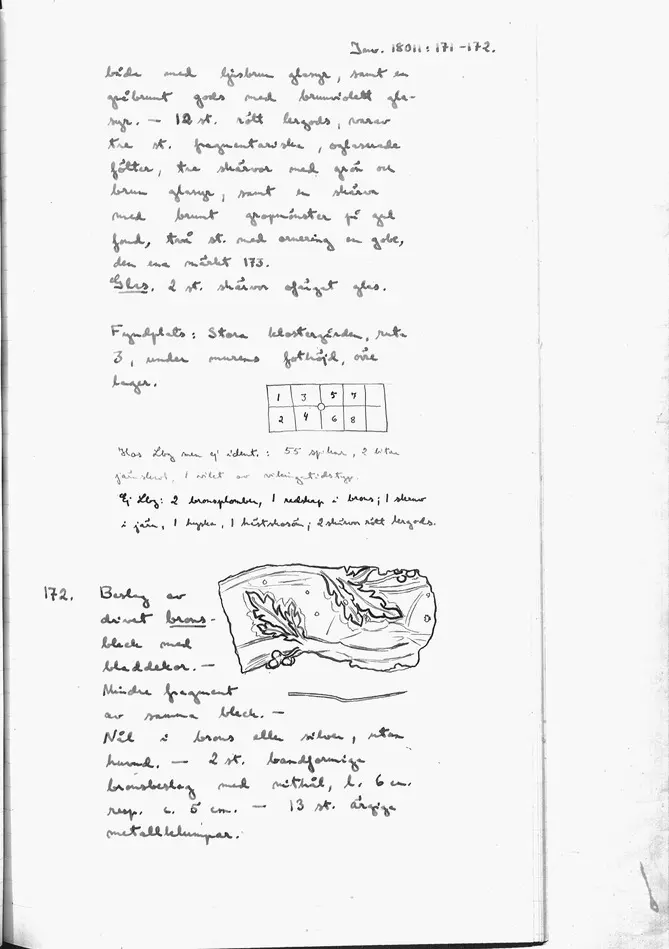 Inv. 18011: 171-172.
både med ljusbrun glasyr, samt en
gråbrunt gods med brunviolett gla-
syr. — 12 st. rött lergods, varav
tre st. fragmentariska, oglaserade
fötter, tre skärvor med grön och
brun glasyr, samt en skärva
med brunt gropmönster på gul
fond, två st. med ornering en gobe,
den ena märkt 173.
Glas. 2 st. skärvor ofärgat glas.
Fyndplats: Stora klostergården, ruta
3, under murens fothöjd, övre
lager.
1 3 5 7
2 4 6 8
Hos Lbg men ej ident.: 55 spikar, 2 bitar
järnskrot, 1 vikt av vikingatidstyp.
Ej Lbg: 2 bronsplomber, 1 redskap i brons; 1
i järn, 1 hyska, 1 hästskosöm; 2 skärvor rött lergods.
172. Beslag av
drivet brons-
bleck med
bladdekor. —
Mindre fragment
av samma bleck. —
Nål i brons eller silver, utan
huvud. — 2 st. bandformiga
bronsbeslag med nithål, l. 6 cm.
resp. c. 5 cm. — 13 st. ärgiga
metallklumpar.